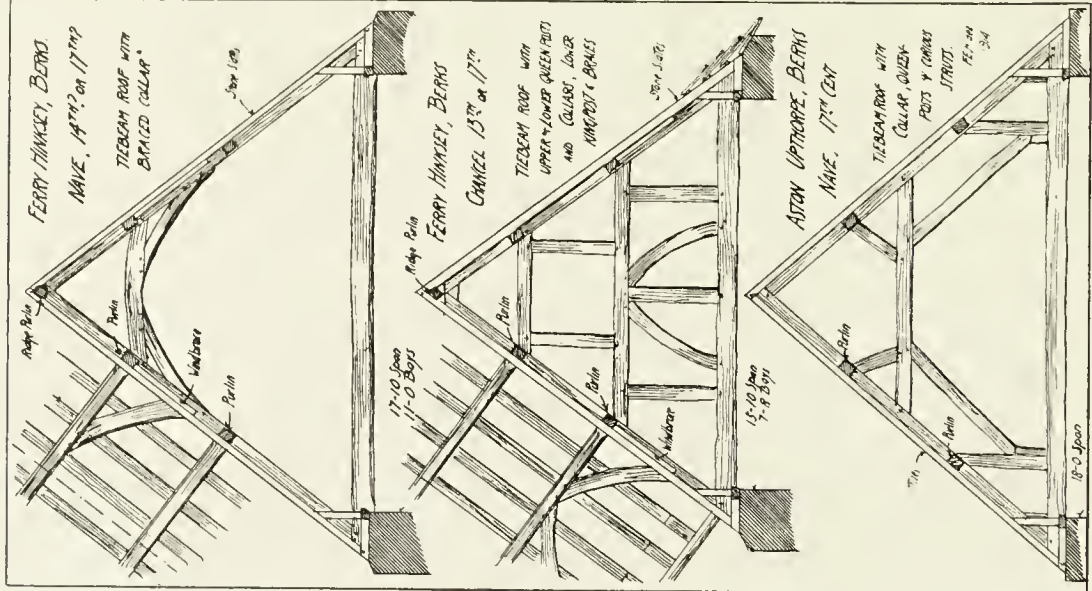 FERRY HINKSEY, BERKS.
NAVE, 14TH? OR 17TH?
TIEBEAM ROOF WITH
BRACED COLLAR
Stone Slats
Ridge Purlin
Purlin
Windbrace
Purlin
17-10 Span
11-0 Bays
FERRY HINKSEY, BERKS
CHANCEL 15TH OR 17TH
TIEBEAM ROOF WITH
UPPER & LOWER QUEEN POSTS
AND COLLARS, LOWER
KINGPOST & BRACES
Stone Slats
Ridge Purlin
Purlin
Purlin
Windbrace
15-10 Span
7-8 Bays
ASTON UPTHORPE, BERKS
NAVE, 17TH CENT
TIEBEAM ROOF WITH
COLLAR, QUEEN-
POSTS & CURVED
STRUTS.
Purlin
Purlin
Tiles
18-0 Span